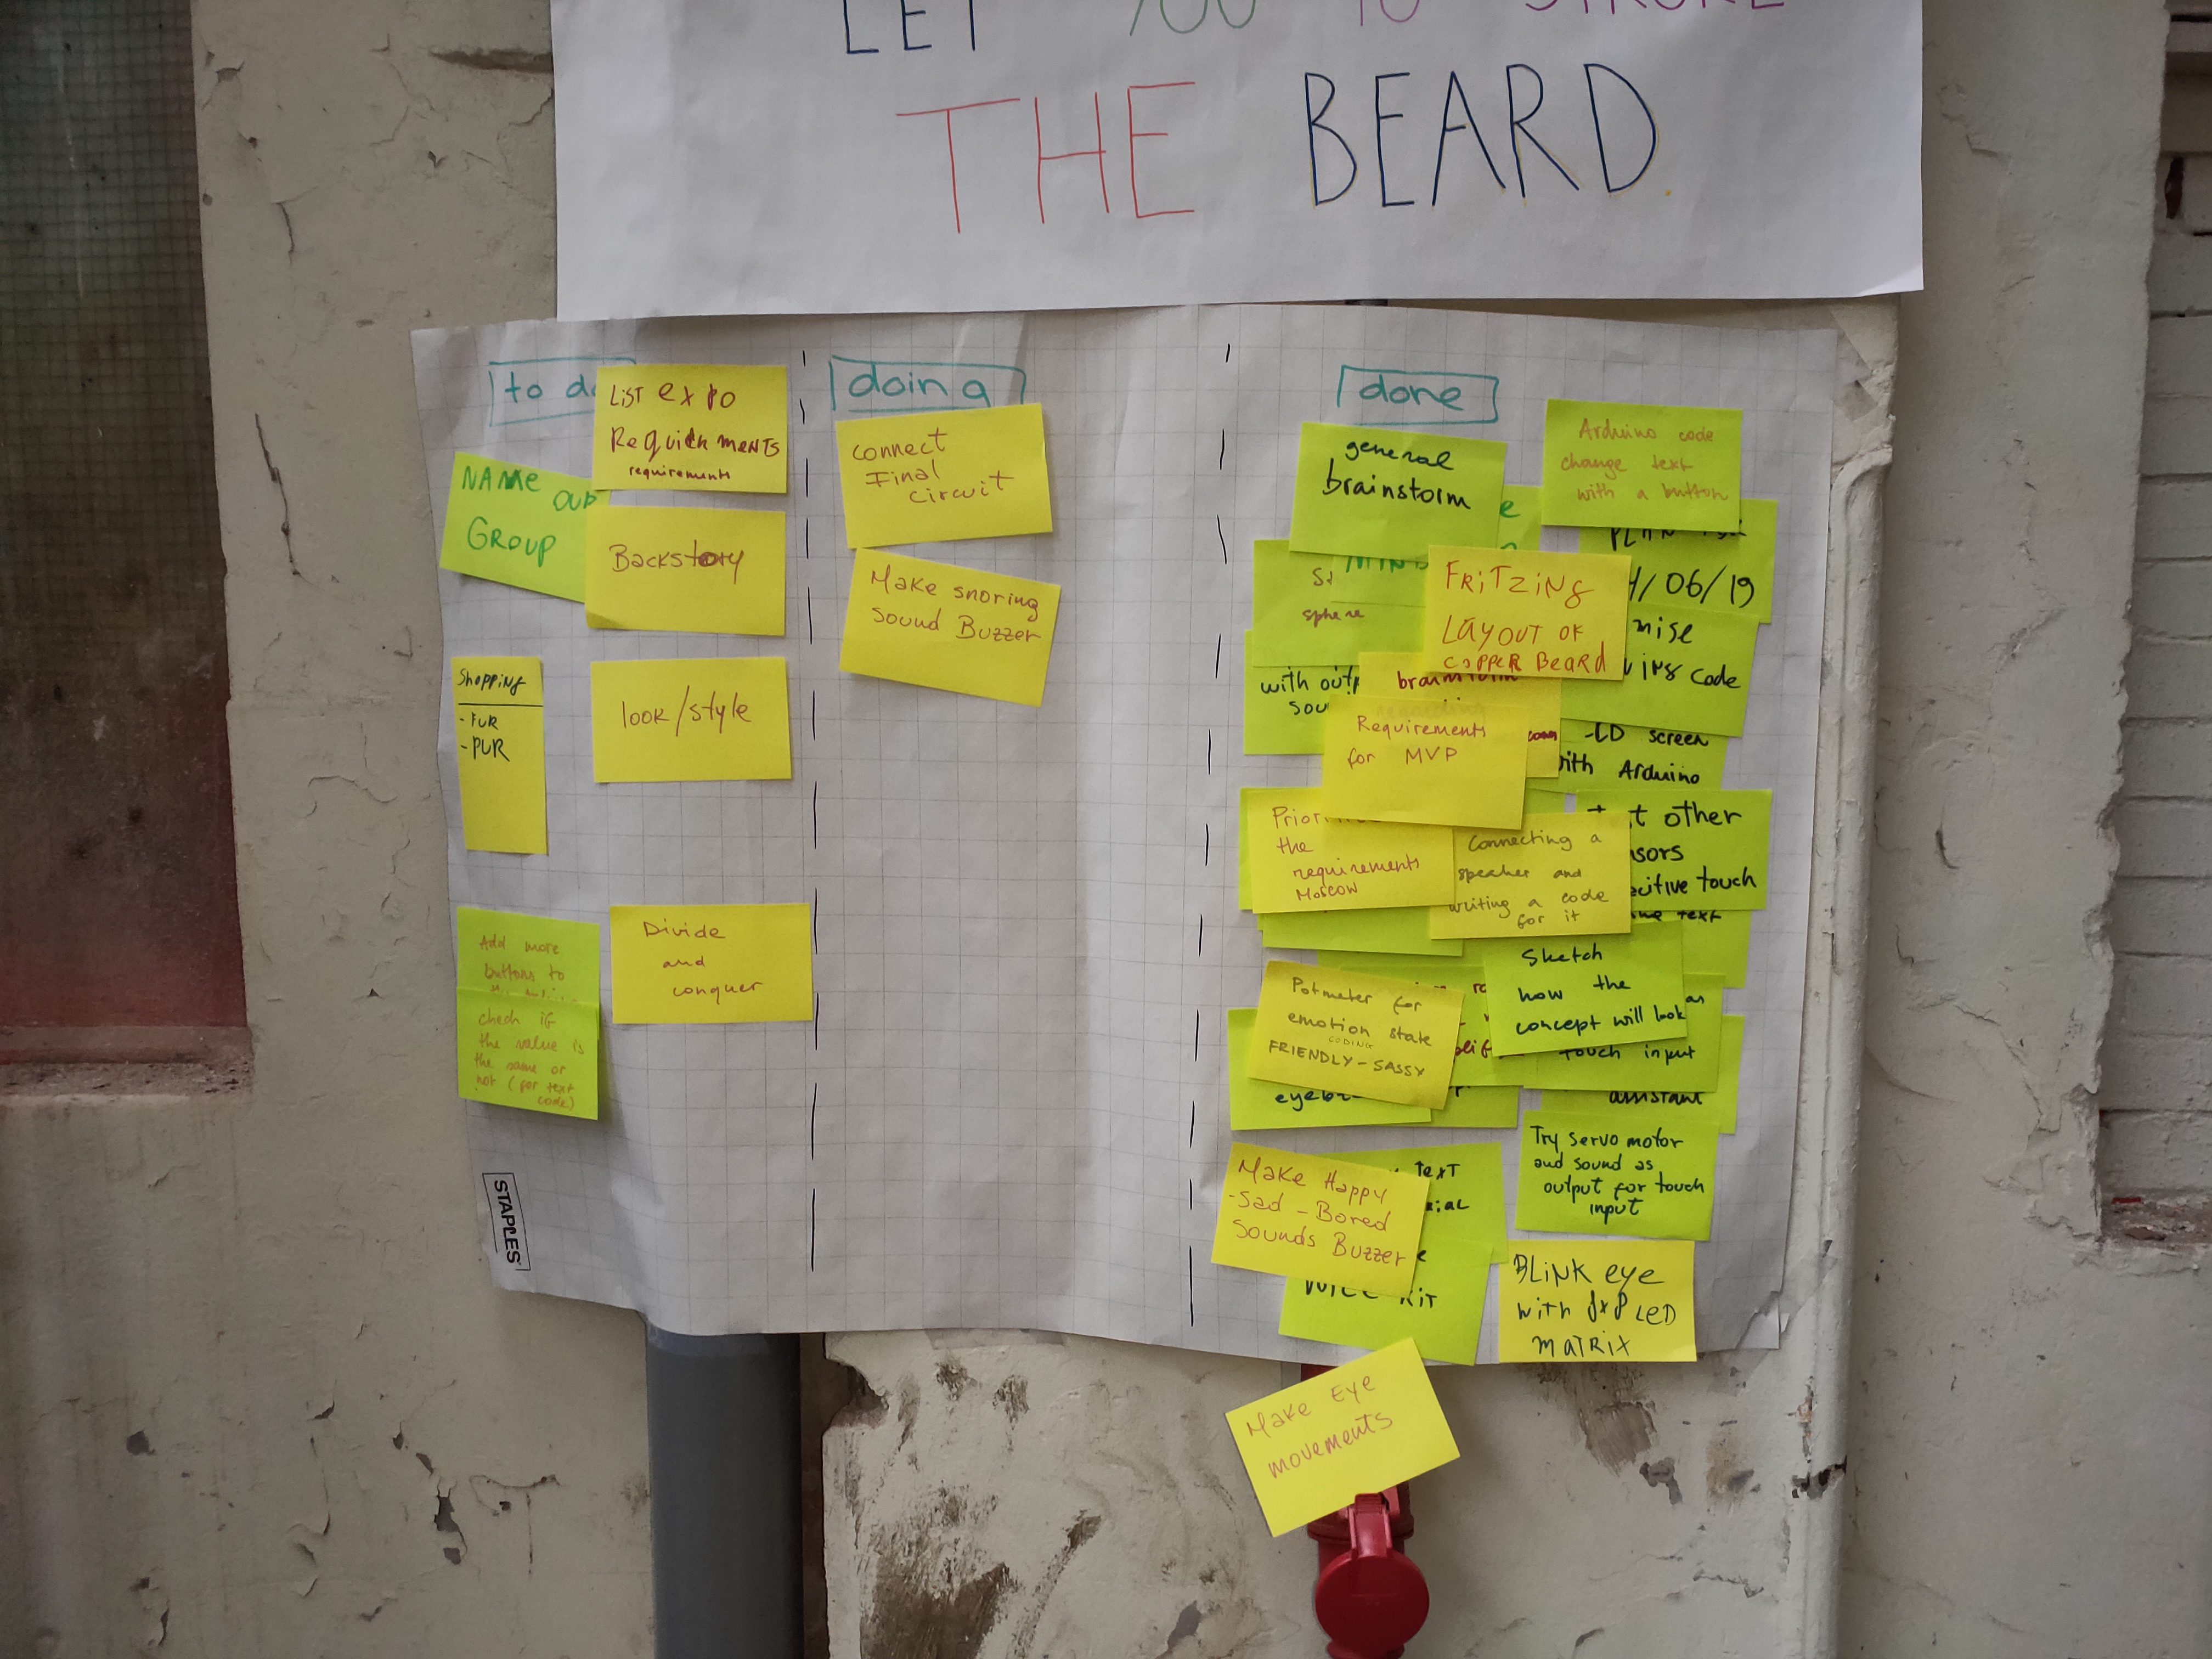 LET YOU TO STROKE
THE BEARD.
to do
LIST EXPO
REQUICKMENTS
requirements
NAME OUR
GROUP
BACKSTORY
Shopping
- FUR
- PUR
look/style
Add more
buttons to
check if
the value is
the same or
not (for text
code)
Divide
and
conquer
STAPLES
doing
connect
Final
circuit
Make snoring
Sound Buzzer
done
general
brainstorm
Arduino code
change text
with a button
/06/19
sphere
FRITZING
LAYOUT OF
COPPER BEARD
code
with
brainstorm
Requirements
for MVP
screen
Arduino
the
requirements
MoSCoW
Connecting a
speaker and
writing a code
for it
other
touch
text
Sketch
how the
concept will look
Potmeter for
emotion state
CODING
FRIENDLY - SASSY
touch input
assistant
Try servo motor
and sound as
output for touch
input
Make Happy
- Sad - Bored
Sounds Buzzer
TEXT
KIT
BLINK eye
with 8x8 LED
MATRIX
Make Eye
movements